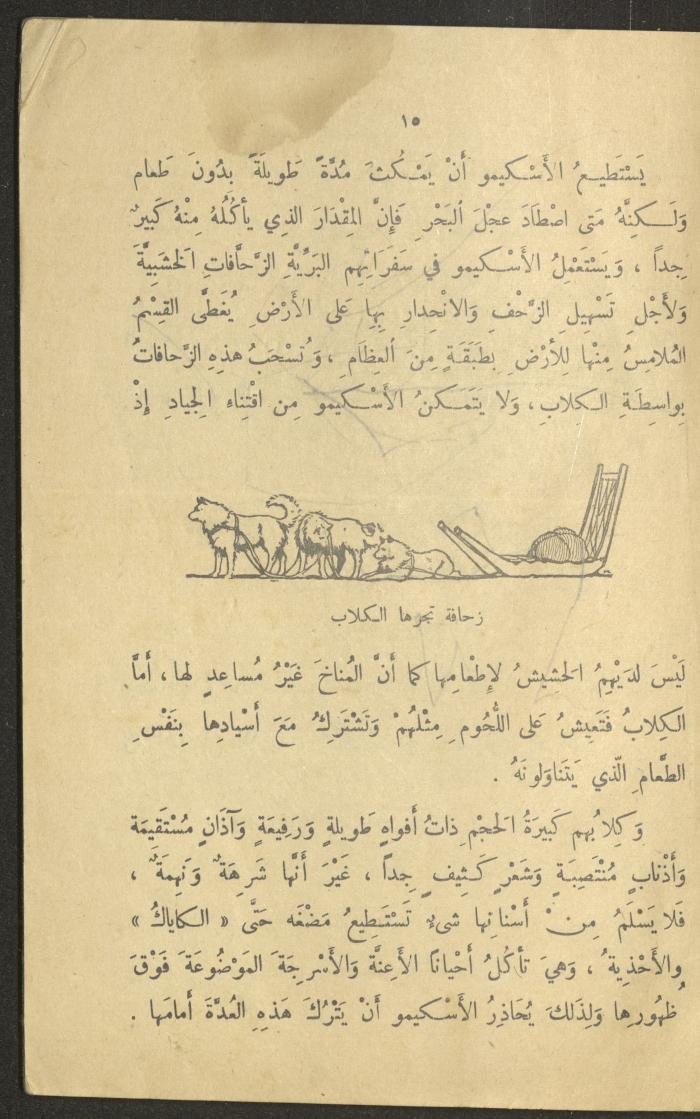 ١٥
يَسْتَطِيعُ الأَسْكيمو أَنْ يَمْكُثَ مُدَّةً طَويلَةً بدُونَ طَعام
وَلَكِنَّهُ مَتى اصْطَادَ عجْلَ البَحْرِ فَإِنَّ المِقْدَارَ الذي يأكُلُهُ مِنْهُ كَبيرٌ
جِداً ، وَيَسْتَعْمِلُ الأَسْكيمو في سَفَرَاتِهِم البَرِّيَّةِ الزَّحَّافاتِ الخَشَبِيَّةَ
وَلأَجْلِ تَسْهيلِ الزَّحْفِ وَالانْحِدارِ بِها عَلى الأَرْضِ يُغَطَّى القِسْمُ
المُلامِسُ مِنْها لِلأَرْضِ بِطَبَقَةٍ مِنَ العِظَامِ ، وَتُسْحَبُ هذِهِ الزَّحافاتُ
بِواسِطَةِ الكلابِ ، وَلا يَتَمَكنُ الأَسْكيمو مِن اقْتِناءِ الجِيادِ إِذْ
زحافة تجرها الكلاب
لَيْسَ لدَيْهِمُ الحَشيشُ لإِطْعامِها كما أَنَّ المُناخَ غَيْرُ مُساعِدٍ لها ، أَمَّا
الكِلابُ فَتَعِيشُ على اللُّحُومِ مِثْلُهُمْ وَتَشْتَرِكُ مَعَ أَسْيادِها بِنَفْسِ
الطَّعامِ الّذي يَتَناوَلونَهُ .
وَكِلابُهم كَبيرَةُ الحَجْمِ ذاتُ أَفواهٍ طَويلةٍ وَرَفِيعَةٍ وَآذَانٍ مُسْتَقِيمَة
وَأَذْنابٍ مُنْتَصِبَةٍ وَشَعْرٍ كَثيفٍ جِداً ، غَيْرَ أَنَّها شَرِهَةٌ وَنَهِمَةٌ ،
فَلا يَسْلَمُ مِنْ أَسْنانِها شىءٌ تَسْتَطيعُ مَضْغَه حَتَّى « الكاياكُ »
والأَحْذِيةُ ، وَهيَ تَأكُلُ أَحْيانًا الأَعِنَّةَ وَالأَسْرِجَةَ المَوْضُوعَةَ فَوْقَ
ظُهُورِها وَلِذَلكَ يُحَاذِرُ الأَسْكيمو أَنْ يَتْرُكَ هَذِهِ العُدَّةَ أَمامَها .